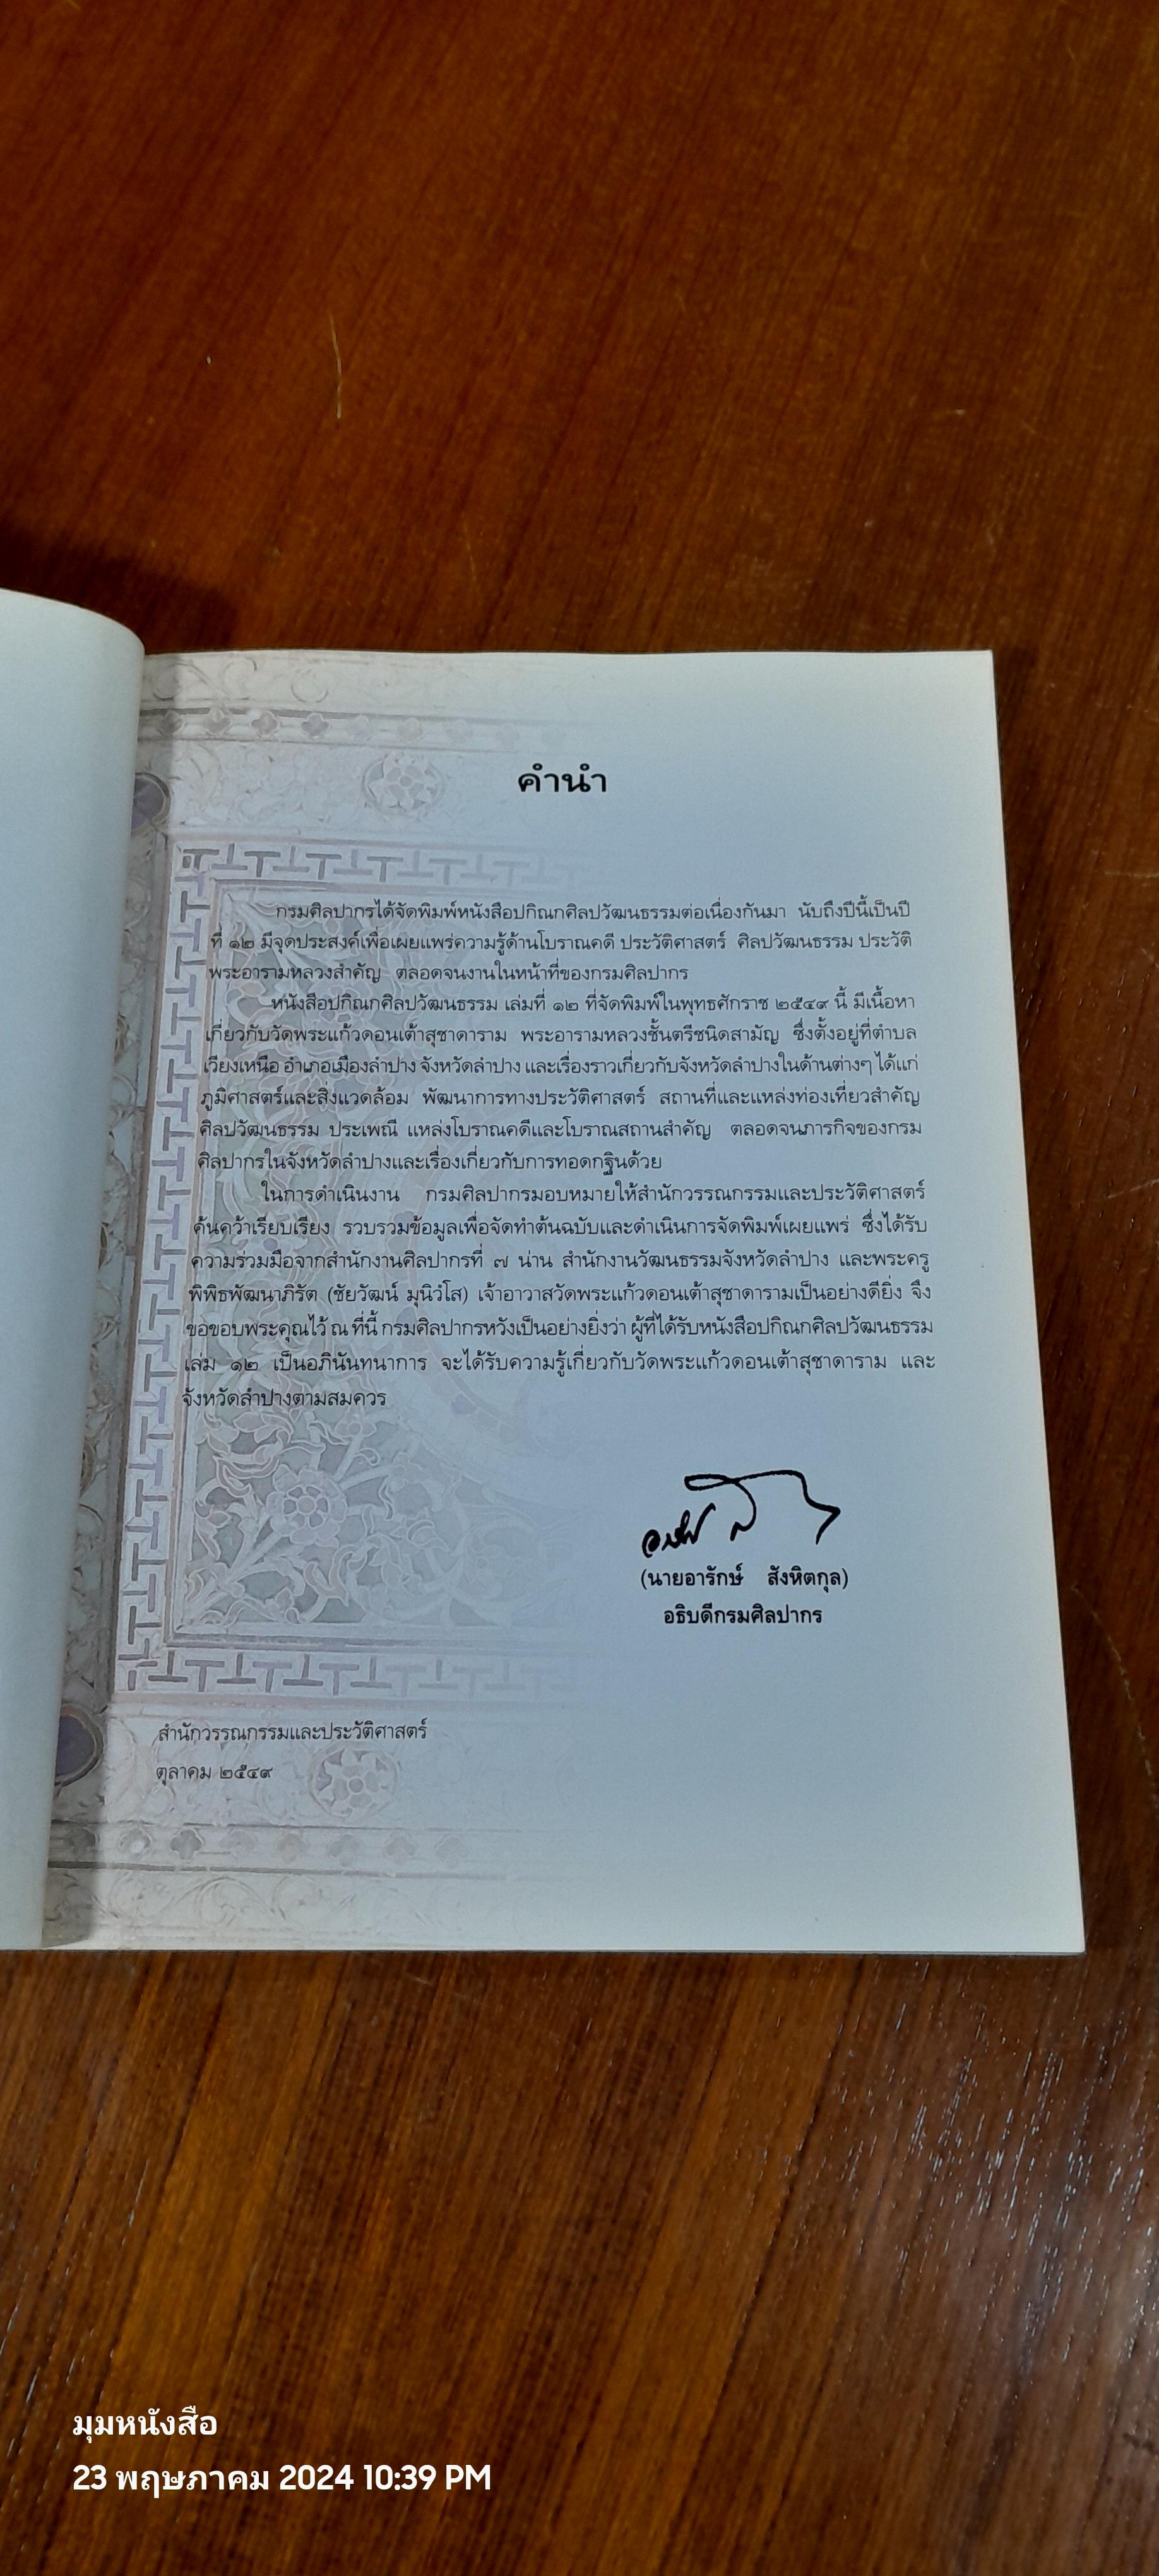 คำนำ
กรมศิลปากรได้จัดพิมพ์หนังสือปกิณกศิลปวัฒนธรรมต่อเนื่องกันมา นับถึงปีนี้เป็นปี
ที่ ๑๒ มีจุดประสงค์เพื่อเผยแพร่ความรู้ด้านโบราณคดี ประวัติศาสตร์ ศิลปวัฒนธรรม ประวัติ
พระอารามหลวงสำคัญ ตลอดจนงานในหน้าที่ของกรมศิลปากร
หนังสือปกิณกศิลปวัฒนธรรม เล่มที่ ๑๒ ที่จัดพิมพ์ในพุทธศักราช ๒๕๔๙ นี้ มีเนื้อหา
เกี่ยวกับวัดพระแก้วดอนเต้าสุชาดาราม พระอารามหลวงชั้นตรีชนิดสามัญ ซึ่งตั้งอยู่ที่ตำบล
เวียงเหนือ อำเภอเมืองลำปาง จังหวัดลำปาง และเรื่องราวเกี่ยวกับจังหวัดลำปางในด้านต่างๆ ได้แก่
ภูมิศาสตร์และสิ่งแวดล้อม พัฒนาการทางประวัติศาสตร์ สถานที่และแหล่งท่องเที่ยวสำคัญ
ศิลปวัฒนธรรม ประเพณี แหล่งโบราณคดีและโบราณสถานสำคัญ ตลอดจนภารกิจของกรม
ศิลปากรในจังหวัดลำปางและเรื่องเกี่ยวกับการทอดกฐินด้วย
ในการดำเนินงาน กรมศิลปากรมอบหมายให้สำนักวรรณกรรมและประวัติศาสตร์
ค้นคว้าเรียบเรียง รวบรวมข้อมูลเพื่อจัดทำต้นฉบับและดำเนินการจัดพิมพ์เผยแพร่ ซึ่งได้รับ
ความร่วมมือจากสำนักงานศิลปากรที่ ๗ น่าน สำนักงานวัฒนธรรมจังหวัดลำปาง และพระครู
พิพิธพัฒนาภิรัต (ชัยวัฒน์ มุนิวํโส) เจ้าอาวาสวัดพระแก้วดอนเต้าสุชาดารามเป็นอย่างดียิ่ง จึง
ขอขอบพระคุณไว้ ณ ที่นี้ กรมศิลปากรหวังเป็นอย่างยิ่งว่า ผู้ที่ได้รับหนังสือปกิณกศิลปวัฒนธรรม
เล่ม ๑๒ เป็นอภินันทนาการ จะได้รับความรู้เกี่ยวกับวัดพระแก้วดอนเต้าสุชาดาราม และ
จังหวัดลำปางตามสมควร
(นายอารักษ์ สังหิตกุล)
อธิบดีกรมศิลปากร
สำนักวรรณกรรมและประวัติศาสตร์
ตุลาคม ๒๕๔๙
มุมหนังสือ
23 พฤษภาคม 2024 10:39 PM